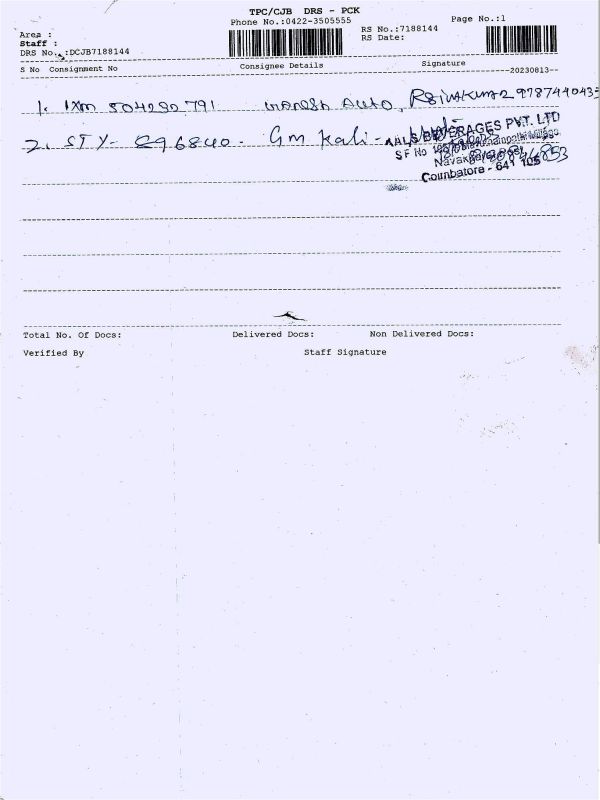 TPC/CJB DRS - PCK
Phone No.:0422-3505555
Page No.:1
Area :
RS No.:7188144
Staff :
RS Date:
DRS No. :DCJB7188144
S No Consignment No Consignee Details Signature
20230813
1. IXM 504290791 Ganesh Auto,
2. STY- 896840- Gm Kali-
BEVERAGES PVT. LTD
SF No
Navak
Coimbatore - 641 105
Total No. Of Docs: Delivered Docs: Non Delivered Docs:
Verified By Staff Signature